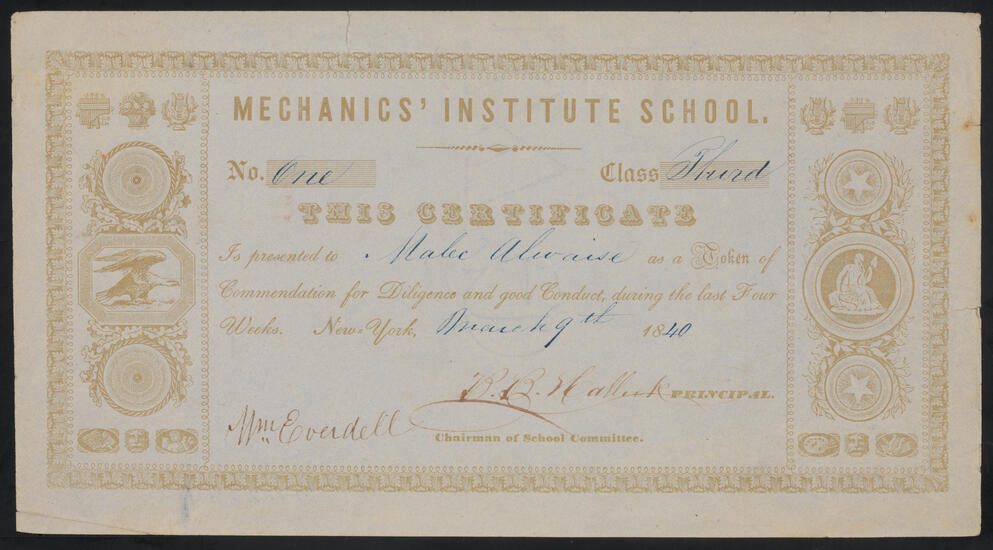 MECHANICS' INSTITUTE SCHOOL.
No. One Class Third
THIS CERTIFICATE
Is presented to Malec Alwaise as a Token of
Commendation for Diligence and good Conduct, during the last Four
Weeks. New-York, March 9th 1840
R. B. Hallock PRINCIPAL.
Wm Everdell
Chairman of School Committee.